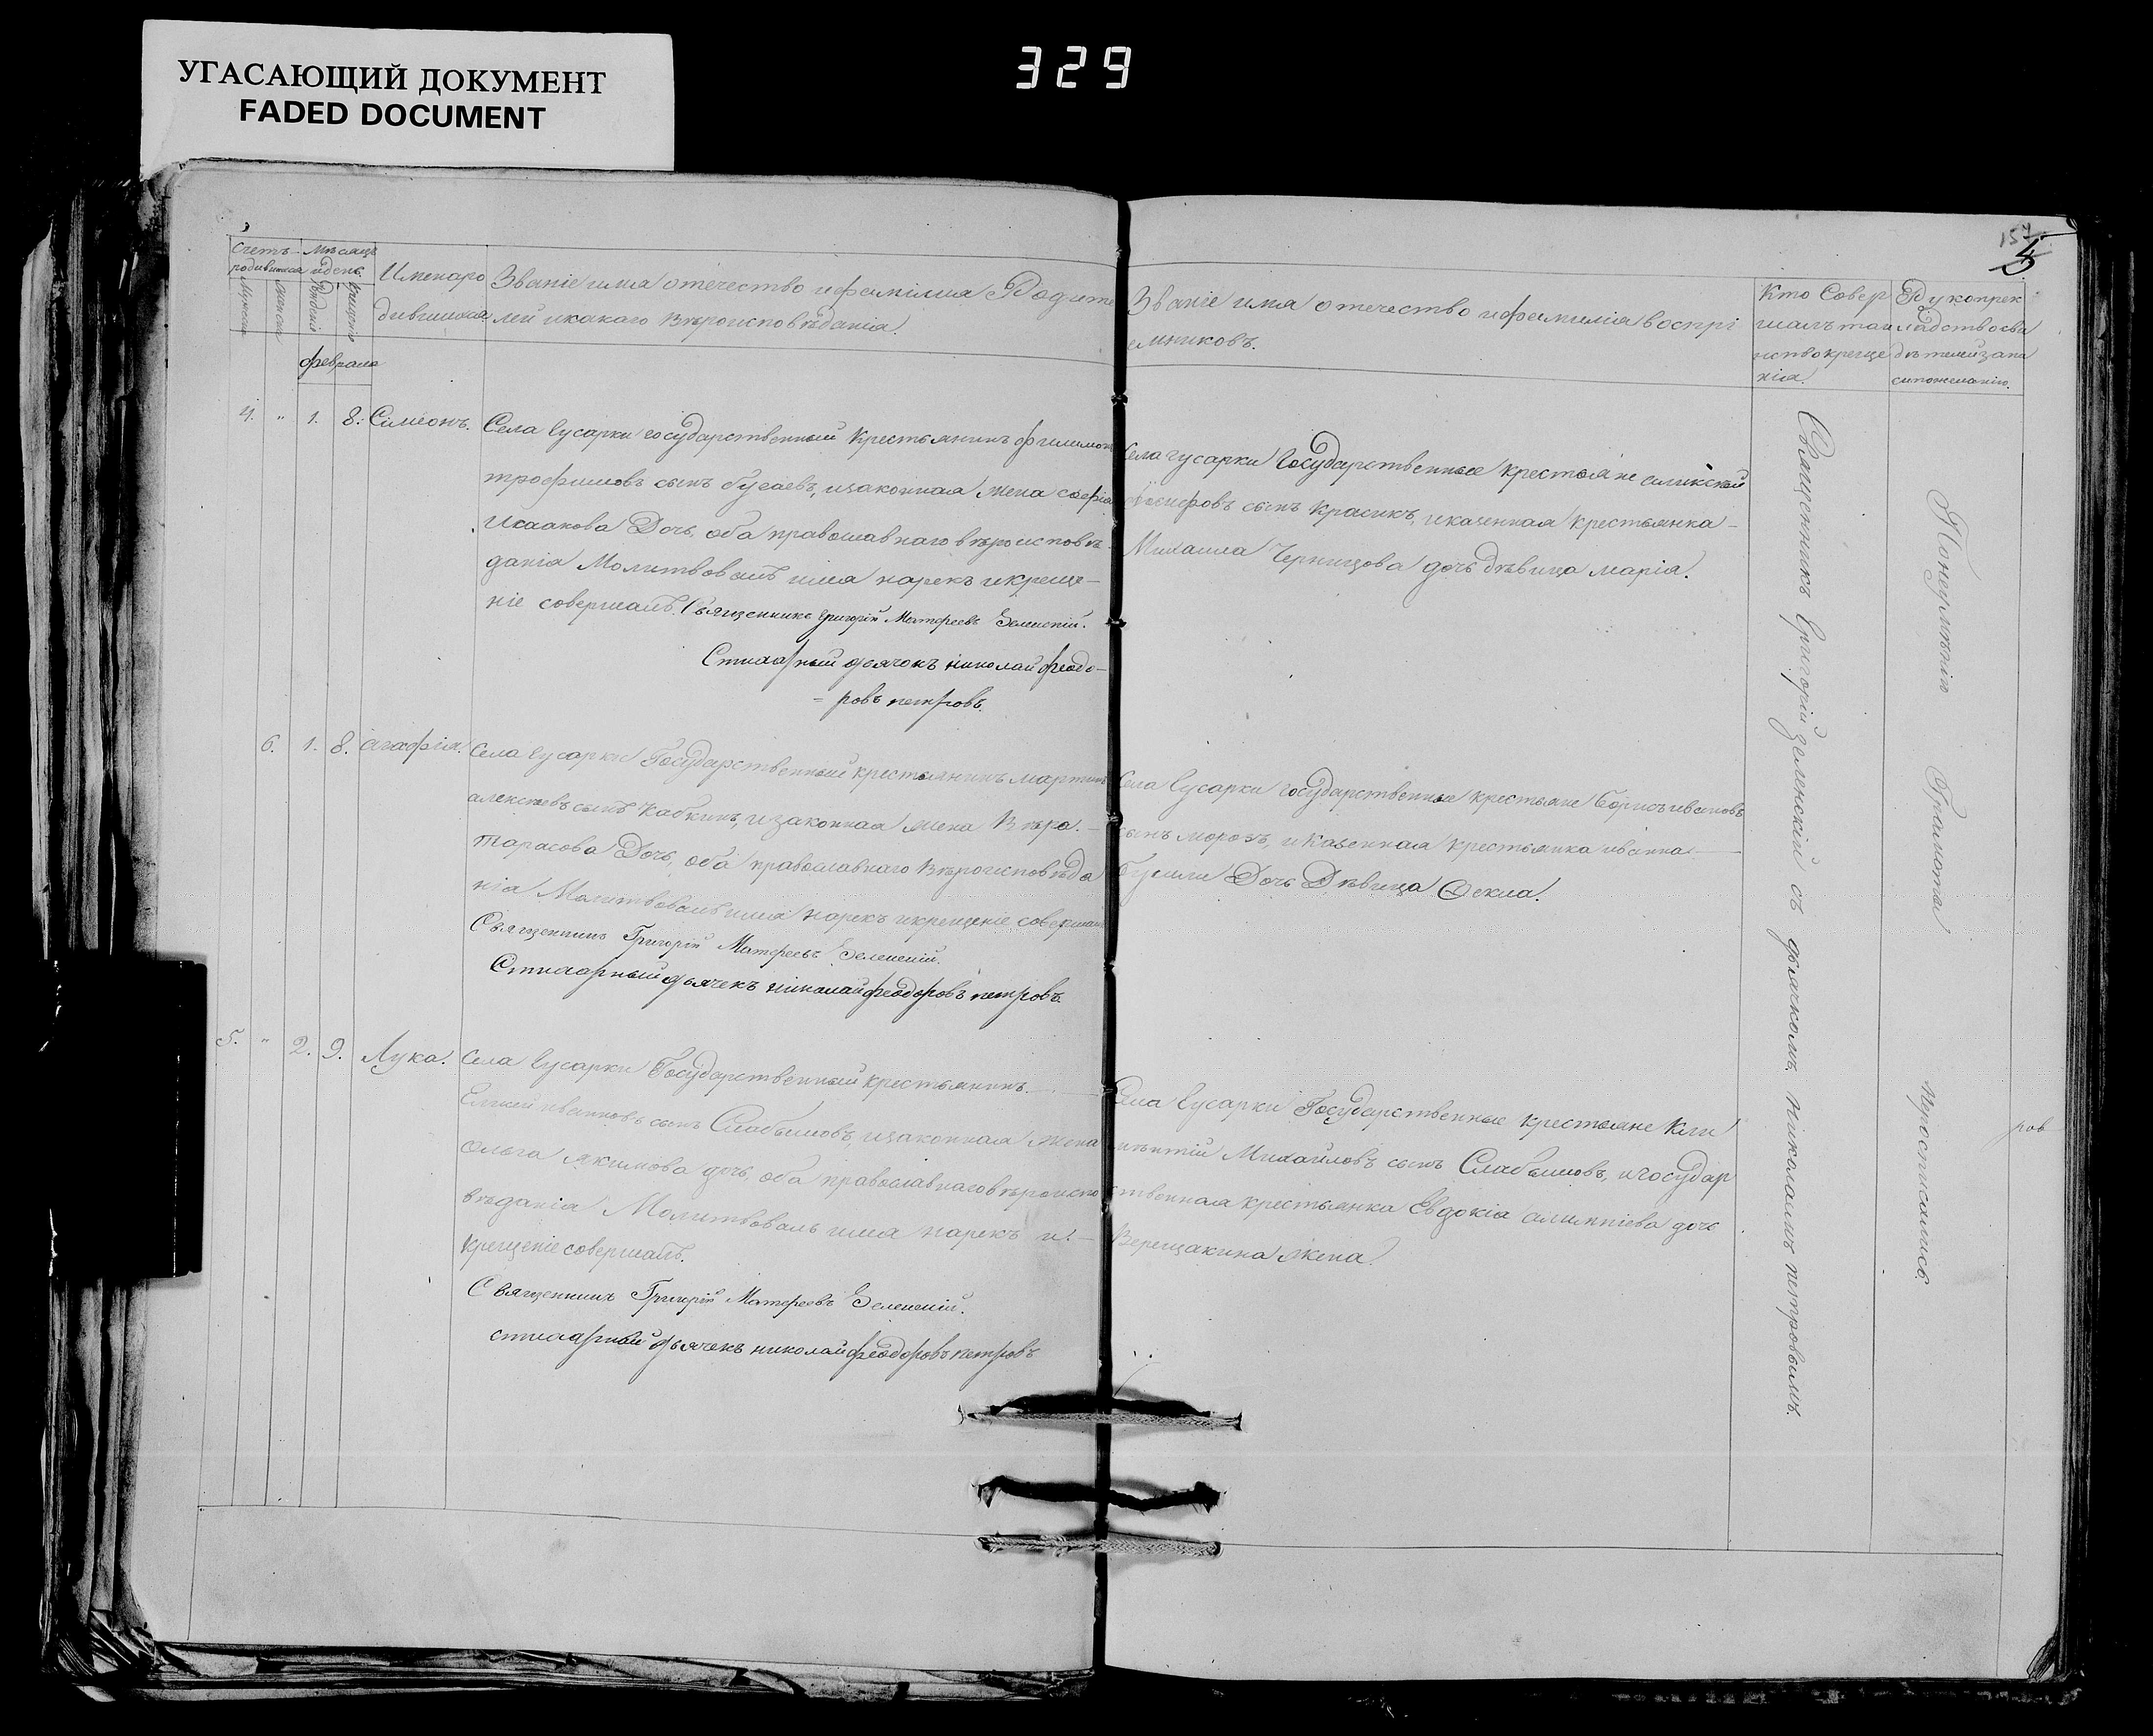 УГАСАЮЩИЙ ДОКУМЕНТ
FADED DOCUMENT
329
5
Счетъ
родившихся
Мѣсяцъ
и день.
Имена ро
дившихся
Званіе имя отечество и фамилия Родите
лей и какаго вѣроисповѣданія.
Званіе имя отечество и фамилія воспрі
емниковъ.
Кто Совер
шалъ таи
нство креще
нія.
Рукоприк
ладство сви
дѣтелей запи
си по желанію.
февраля
4. „ 1. 8. Сімеонъ.
Села Гусарки государственный крестьянинъ филимонъ
трофимовъ сынъ бугаевъ, и законная жена софія
Исаакова Дочь, оба православнаго вѣроисповѣ
данія Молитвовалъ имя нарекъ и креще-
ніе совершалъ. Священникъ Григорій Матфеевъ Зеленскій.
Стихарный дьячокъ николай феодо-
ровъ петровъ.
Села гусарки Государственные крестьяне
сынъ Красикъ, и казенная крестьянка
Михаила Чернцова дочь дѣвица марія.
6. 1. 8. агафія.
Села Гусарки Государственный крестьянинъ мартинъ
алексѣевъ сынъ Кабкинъ, и законная жена Вѣра
Тарасова Дочь, оба православнаго Вѣроисповѣда
нія Молитвовалъ имя нарекъ и крещеніе совершалъ
Священникъ Григорій Матфеевъ Зеленскій.
Стихарный дьячекъ николай феодоровъ петровъ.
Села Гусарки государственные крестьяне борисъ ивановъ
сынъ морозъ, и казенная крестьянка ивана
Дочь Дѣвица Ѳекла.
5. „ 2. 9. Лука.
Села Гусарки Государственный крестьянинъ
Елисей ивановъ сынъ Слабышовъ, и законная жена
Ольга якимова дочь, оба православнаго вѣроиспо
вѣданія Молитвовалъ имя нарекъ и
крещеніе совершалъ.
Священникъ Григорій Матфеевъ Зеленскій.
стихарный дьячекъ николай феодоровъ петровъ
Села Гусарки Государственные крестьяне Кли
мѣнтій Михайловъ сынъ Слабышовъ, и государ
ственная крестьянка Евдокія алимпіева дочь
Верещакина жена.
Священникъ Григорій зеленскій съ дьячкомъ николаемъ петровымъ.
По неумѣнію Грамоты не росписались.
ров